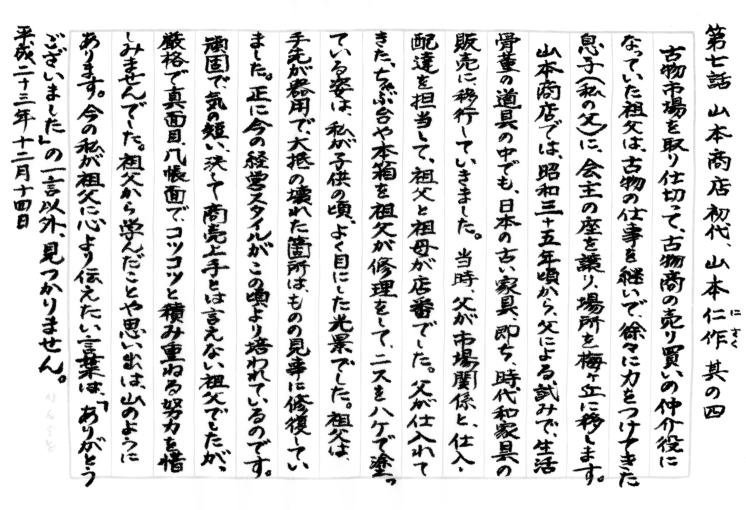 第七話 山本商店初代、山本仁作 其の四
にさく
古物市場を取り仕切って、古物商の売り買いの仲介役に
なっていた祖父は、古物の仕事を継いで、徐々に力をつけてきた
息子(私の父)に、会主の座を譲り、場所を梅ヶ丘に移します。
山本商店では、昭和三十五年頃から、父による試みで、生活
骨董の道具の中でも、日本の古い家具、即ち、時代和家具の
販売に移行していきました。当時、父が市場関係と、仕入・
配達を担当して、祖父と祖母が店番でした。父が仕入れて
きた、ちゃぶ台や本箱を祖父が修理をして、ニスをハケで塗っ
ている姿は、私が子供の頃、よく目にした光景でした。祖父は、
手先が器用で、大抵の壊れた箇所は、ものの見事に修復してい
ました。正に今の経営スタイルがこの頃より培われているのです。
頑固で、気の短い、決して商売上手とは言えない祖父でしたが、
厳格で真面目、几帳面で、コツコツと積み重ねる努力を惜
しみませんでした。祖父から学んだことや思い出は、山のように
あります。今の私が祖父に心より伝えたい言葉は、「ありがとう
ございました」の一言以外、見つかりません。
平成二十三年十二月十四日